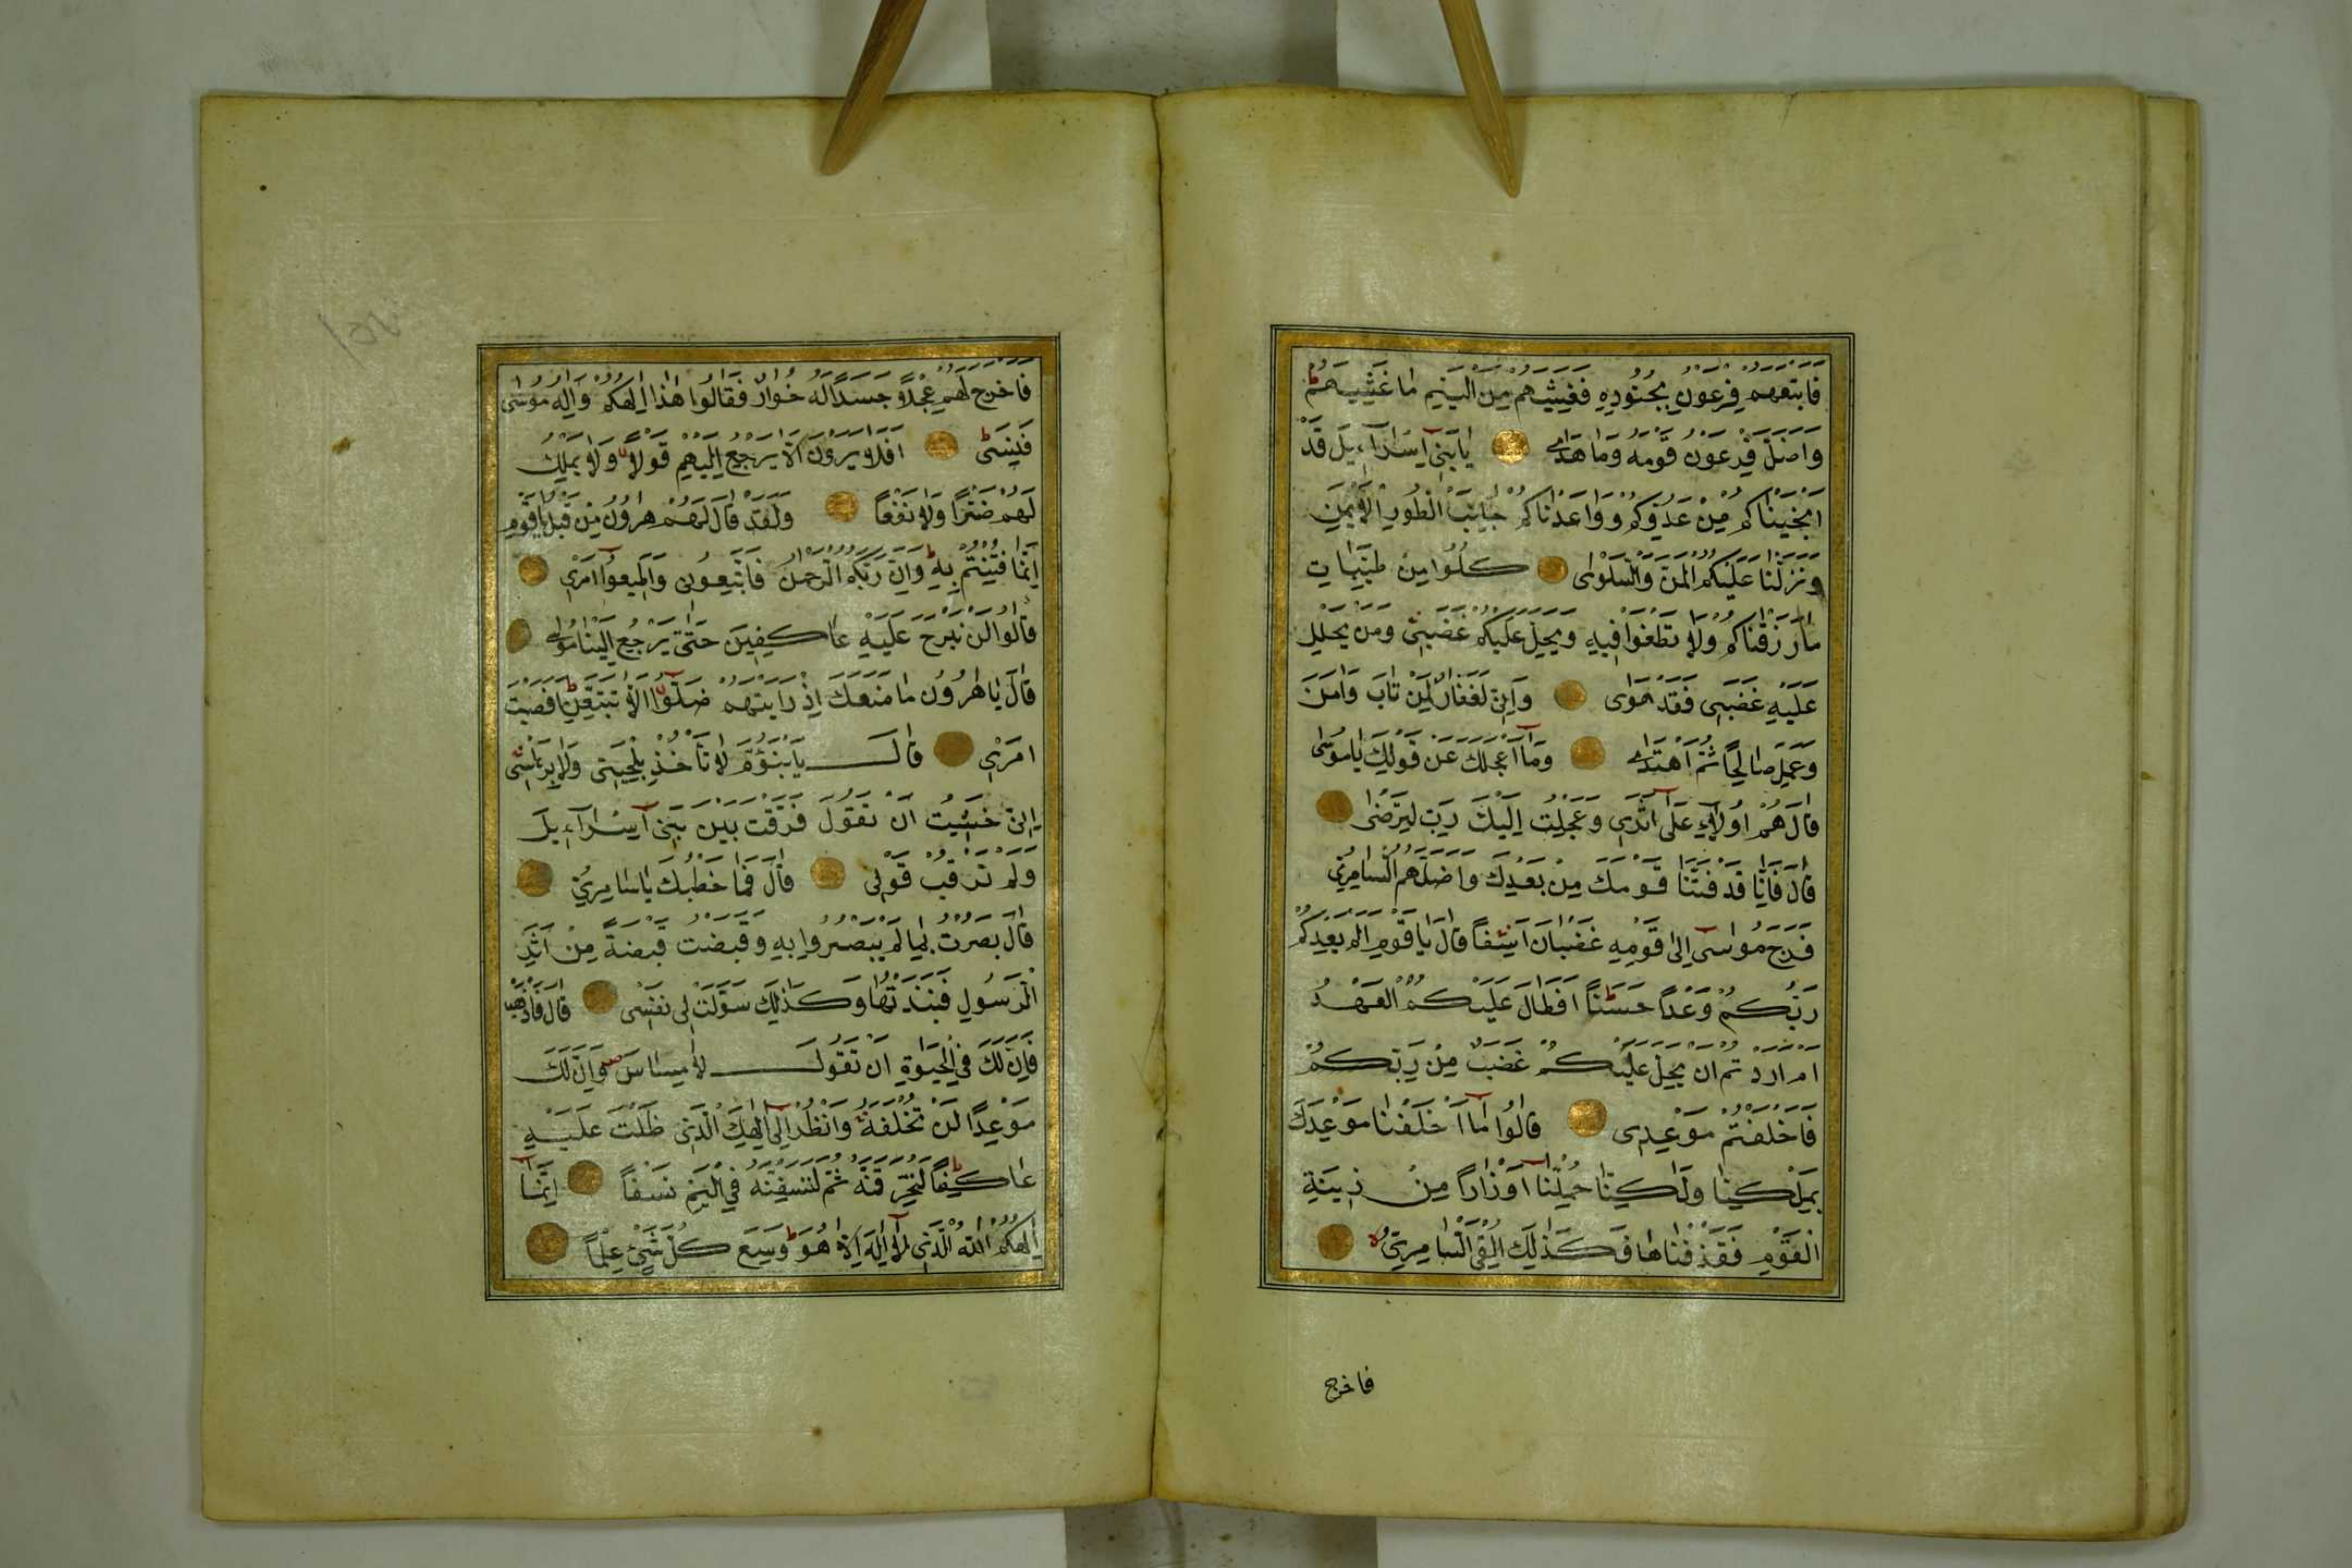 فَاَتْبَعَهُمْ فِرْعَوْنُ بِجُنُودِهٖ فَغَشِيَهُمْ مِنَ الْيَمِّ مَا غَشِيَهُمْ ط
وَاَضَلَّ فِرْعَوْنُ قَوْمَهُ وَمَا هَدٰى يَا بَنِى اِسْرَآءِيلَ قَدْ
اَنْجَيْنَاكُمْ مِنْ عَدُوِّكُمْ وَوَاعَدْنَاكُمْ جَانِبَ الطُّورِ الْاَيْمَنِ
وَنَزَّلْنَا عَلَيْكُمُ الْمَنَّ وَالسَّلْوٰى كُلُوا مِنْ طَيِّبَاتِ
مَا رَزَقْنَاكُمْ وَلَا تَطْغَوْا فِيهِ فَيَحِلَّ عَلَيْكُمْ غَضَبِى وَمَنْ يَحْلِلْ
عَلَيْهِ غَضَبِى فَقَدْ هَوٰى وَاِنِّى لَغَفَّارٌ لِمَنْ تَابَ وَاٰمَنَ
وَعَمِلَ صَالِحًا ثُمَّ اهْتَدٰى وَمَآ اَعْجَلَكَ عَنْ قَوْمِكَ يَا مُوسٰى
قَالَ هُمْ اُولَآءِ عَلٰٓى اَثَرِى وَعَجِلْتُ اِلَيْكَ رَبِّ لِتَرْضٰى
قَالَ فَاِنَّا قَدْ فَتَنَّا قَوْمَكَ مِنْ بَعْدِكَ وَاَضَلَّهُمُ السَّامِرِىُّ
فَرَجَعَ مُوسٰٓى اِلٰى قَوْمِهِ غَضْبَانَ اَسِفًا قَالَ يَا قَوْمِ اَلَمْ يَعِدْكُمْ
رَبُّكُمْ وَعْدًا حَسَنًا ط اَفَطَالَ عَلَيْكُمُ الْعَهْدُ
اَمْ اَرَدْتُمْ اَنْ يَحِلَّ عَلَيْكُمْ غَضَبٌ مِنْ رَبِّكُمْ
فَاَخْلَفْتُمْ مَوْعِدِى قَالُوا مَآ اَخْلَفْنَا مَوْعِدَكَ
بِمَلْكِنَا وَلٰكِنَّا حُمِّلْنَآ اَوْزَارًا مِنْ زِينَةِ
الْقَوْمِ فَقَذَفْنَاهَا فَكَذٰلِكَ اَلْقَى السَّامِرِىُّ لا
فاخرج
فَاَخْرَجَ لَهُمْ عِجْلًا جَسَدًا لَهُ خُوَارٌ فَقَالُوا هٰذَٓا اِلٰهُكُمْ وَاِلٰهُ مُوسٰى
فَنَسِىَ ط اَفَلَا يَرَوْنَ اَلَّا يَرْجِعُ اِلَيْهِمْ قَوْلًا وَلَا يَمْلِكُ
لَهُمْ ضَرًّا وَلَا نَفْعًا وَلَقَدْ قَالَ لَهُمْ هٰرُونُ مِنْ قَبْلُ يَا قَوْمِ
اِنَّمَا فُتِنْتُمْ بِهِ ط وَاِنَّ رَبَّكُمُ الرَّحْمٰنُ فَاتَّبِعُونِى وَاَطِيعُوٓا اَمْرِى
قَالُوا لَنْ نَبْرَحَ عَلَيْهِ عَاكِفِينَ حَتّٰى يَرْجِعَ اِلَيْنَا مُوسٰى
قَالَ يَا هٰرُونُ مَا مَنَعَكَ اِذْ رَاَيْتَهُمْ ضَلُّوٓا اَلَّا تَتَّبِعَنِ ط اَفَعَصَيْتَ
اَمْرِى قَالَ يَبْنَؤُمَّ لَا تَأْخُذْ بِلِحْيَتِى وَلَا بِرَأْسِى
اِنِّى خَشِيتُ اَنْ تَقُولَ فَرَّقْتَ بَيْنَ بَنِىٓ اِسْرَآءِيلَ
وَلَمْ تَرْقُبْ قَوْلِى قَالَ فَمَا خَطْبُكَ يَا سَامِرِىُّ
قَالَ بَصُرْتُ بِمَا لَمْ يَبْصُرُوا بِهِ فَقَبَضْتُ قَبْضَةً مِنْ اَثَرِ
الرَّسُولِ فَنَبَذْتُهَا وَكَذٰلِكَ سَوَّلَتْ لِى نَفْسِى قَالَ فَاذْهَبْ
فَاِنَّ لَكَ فِى الْحَيٰوةِ اَنْ تَقُولَ لَا مِسَاسَ وَاِنَّ لَكَ
مَوْعِدًا لَنْ تُخْلَفَهُ وَانْظُرْ اِلٰٓى اِلٰهِكَ الَّذِى ظَلْتَ عَلَيْهِ
عَاكِفًا ط لَنُحَرِّقَنَّهُ ثُمَّ لَنَنْسِفَنَّهُ فِى الْيَمِّ نَسْفًا اِنَّمَآ
اِلٰهُكُمُ اللّٰهُ الَّذِى لَآ اِلٰهَ اِلَّا هُوَ ط وَسِعَ كُلَّ شَىْءٍ عِلْمًا